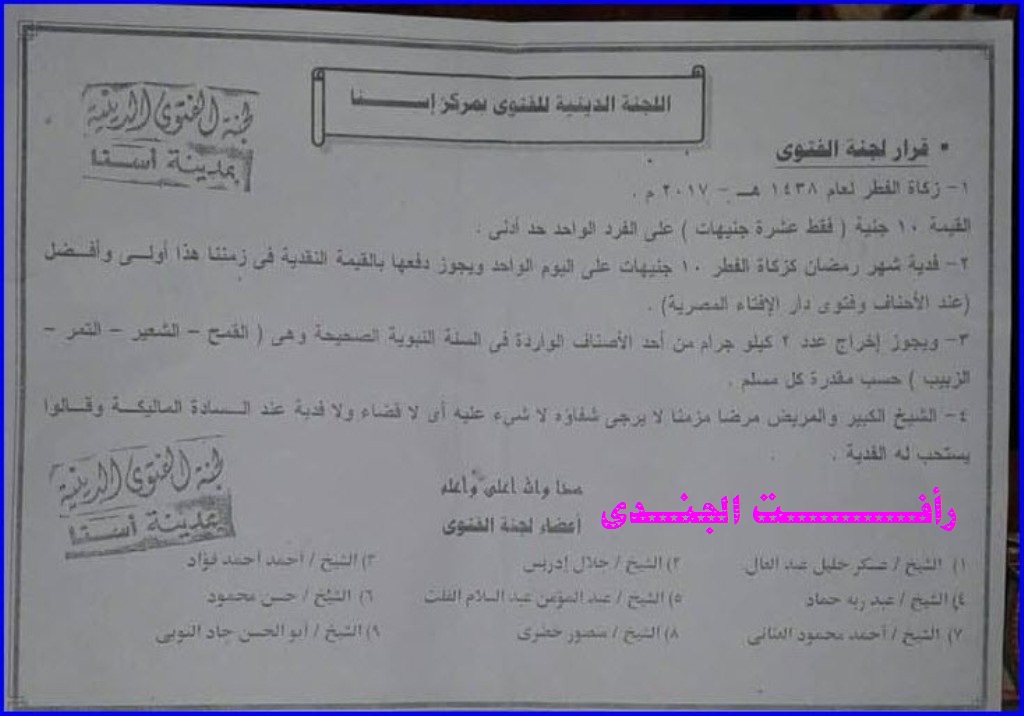 اللجنة الدينية للفتوى بمركز إسنا
لجنة الفتوى الدينية
بمدينة أسنا
▪ قرار لجنة الفتوى
١- زكاة الفطر لعام ١٤٣٨ هـ - ٢٠١٧ م .
القيمة ١٠ جنية ( فقط عشرة جنيهات ) على الفرد الواحد حد أدنى .
٢- فدية شهر رمضان كزكاة الفطر ١٠ جنيهات على اليوم الواحد ويجوز دفعها بالقيمة النقدية فى زمننا هذا أولى وأفضل
(عند الأحناف وفتوى دار الإفتاء المصرية) .
٣- ويجوز إخراج عدد ٢ كيلو جرام من أحد الأصناف الواردة فى السنة النبوية الصحيحة وهى ( القمح – الشعير – التمر –
الزبيب ) حسب مقدرة كل مسلم .
٤- الشيخ الكبير والمريض مرضا مزمنا لا يرجى شفاؤه لا شيء عليه أى لا قضاء ولا فدية عند السادة المالكية وقالوا
يستحب له الفدية .
لجنة الفتوى الدينية
بمدينة أسنا
هذا والله أعلى وأعلم
رأفت الجندى
أعضاء لجنة الفتوى
١) الشيخ / عسكر خليل عبد العال ٢) الشيخ / جلال إدريس ٣) الشيخ / أحمد أحمد فؤاد
٤) الشيخ / عبد ربه حماد ٥) الشيخ / عبد المؤمن عبد السلام ٦) الشيخ / حسن محمود
٧) الشيخ / أحمد محمود ٨) الشيخ / منصور خضرى ٩) الشيخ / أبو الحسن جاد النوبى